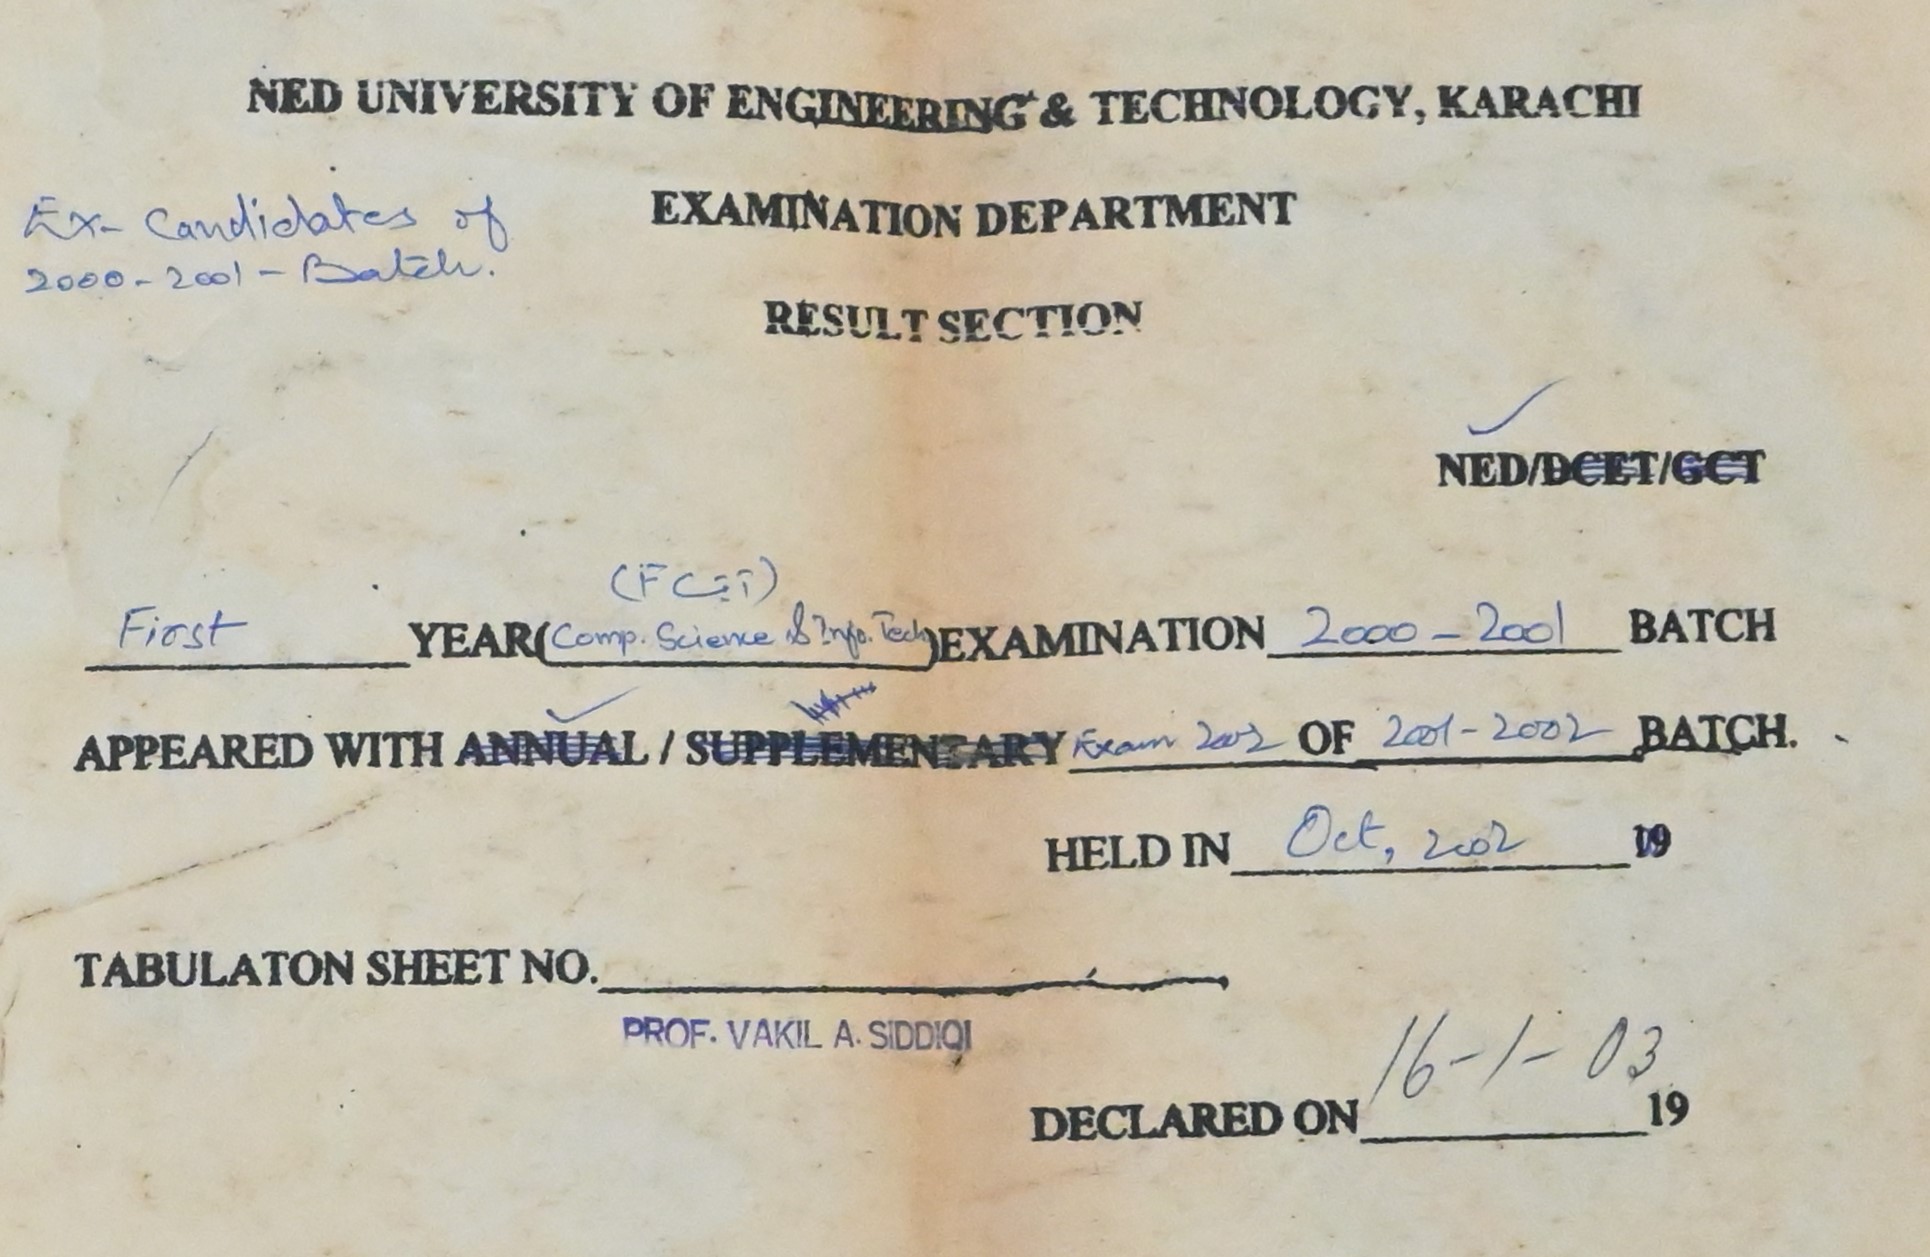 NED UNIVERSITY OF ENGINEERING & TECHNOLOGY, KARACHI
EXAMINATION DEPARTMENT
Ex-Candidates of
2000-2001-Batch.
RESULT SECTION
NED/DCET/GCT
(FCIT)
First YEAR(Comp. Science & Info. Tech)EXAMINATION 2000-2001 BATCH
APPEARED WITH ANNUAL / SUPPLEMENTARY Exam 2002 OF 2001-2002 BATCH.
HELD IN Oct, 2002 19
TABULATON SHEET NO.
PROF. VAKIL A. SIDDIQI
DECLARED ON 16-1-03 19